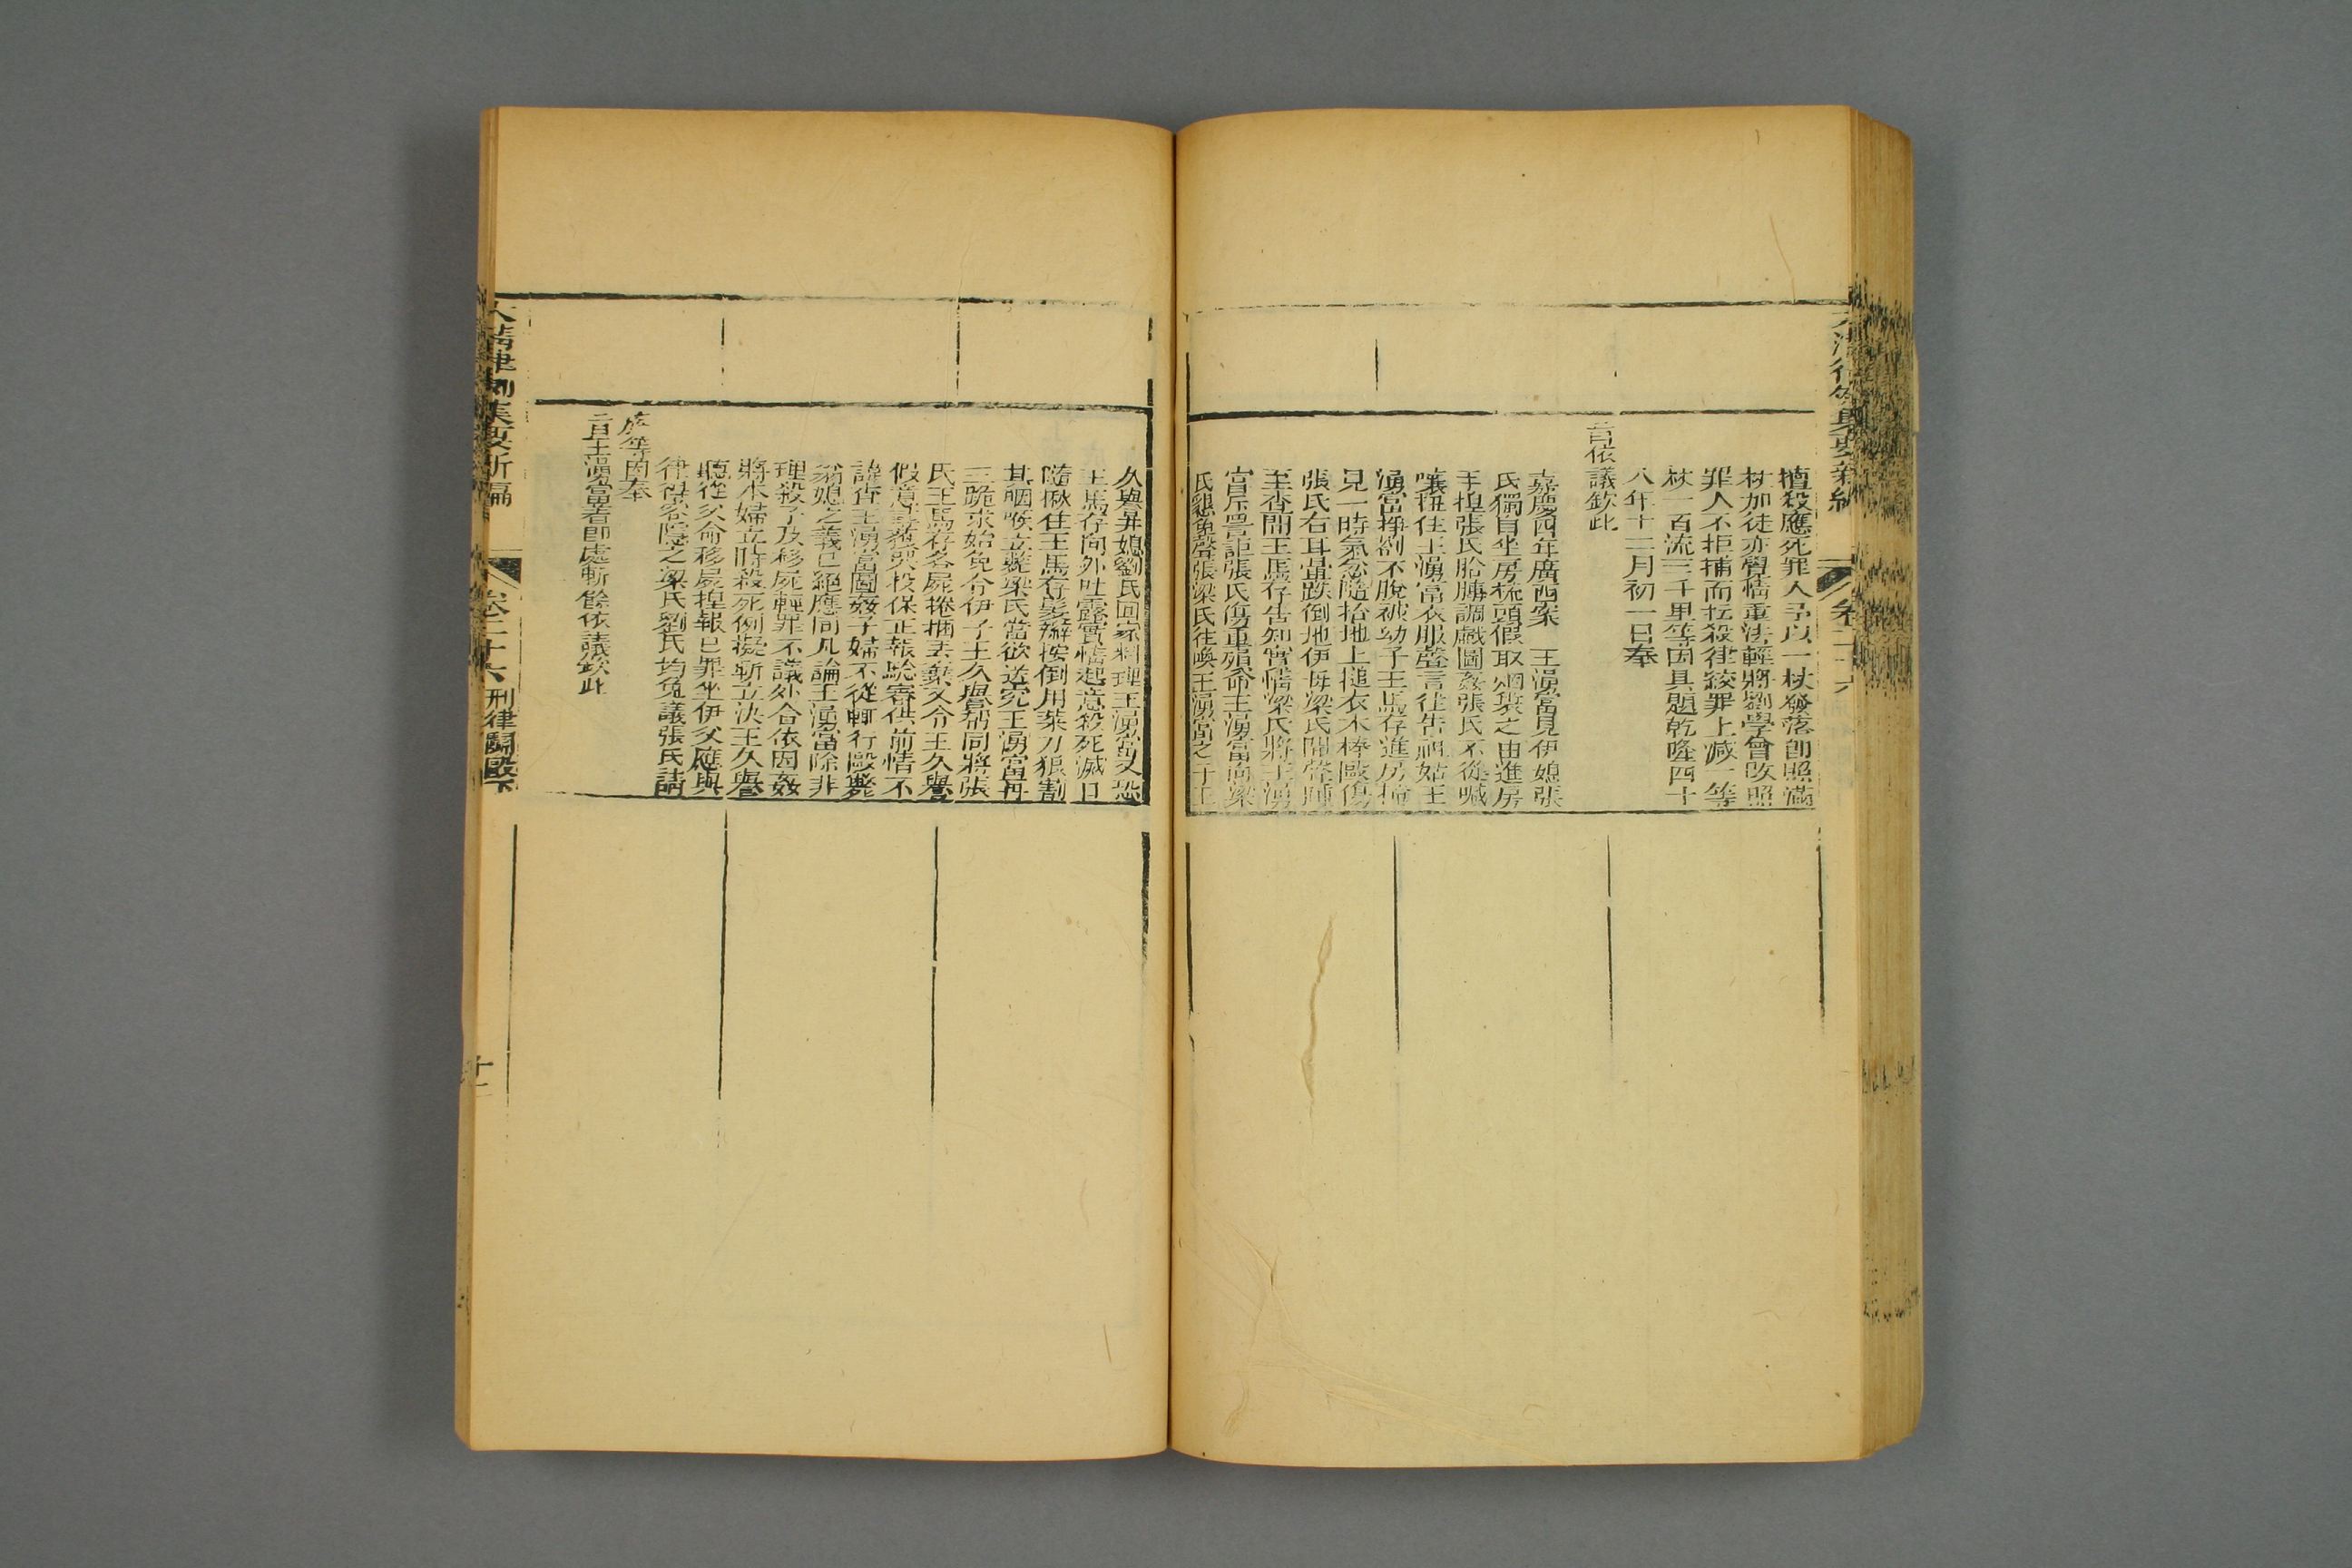 大清律例彙要新編
卷二十六
擅殺應死罪人予以一杖發落卽照滿
杖加徒亦覺情重法輕將劉學曾改照
罪人不拒捕而擅殺律絞罪上減一等
杖一百流三千里等因具題乾隆四十
八年十二月初一日奉
旨依議欽此
嘉慶四年廣西案 王湧富見伊媳張
氏獨自坐房梳頭假取烟袋之由進房
手揑張氏胳膊調戲圖姦張氏不從喊
嚷扭住王湧富衣服聲言往告祖姑王
湧富掙剳不脫被幼子王馬存進房撞
見一時氣忿隨拾地上搥衣木棒毆傷
張氏右耳竅跌倒地伊母梁氏聞聲踵
至查問王馬存告知實情梁氏將王湧
富斥詈詎張氏傷重殞命王湧富向梁
氏懇免聲張梁氏往喚王湧富之子王
久與幷媳劉氏回家料理王湧富又恐
王馬存向外吐露實情起意殺死滅口
隨揪住王馬存髮辮按倒用菜刀狠割
其咽喉立斃梁氏當欲送究王湧富再
三跪求始免令伊子王久與幫同將張
氏王馬存各屍捲捆丟棄又令王久與
假意尋獲哭投保正報驗審供前情不
諱查王湧富圖姦子婦不從輒行毆斃
翁媳之義已絕應同凡論王湧富除非
理殺子及移屍輕罪不議外合依因姦
將本婦立時殺死例擬斬立決王久與
聽從父命移屍揑報已罪坐伊父應與
律得容隱之梁氏劉氏均免議張氏請
旌等因奉
旨王湧富著卽處斬餘依議欽此
大清律例彙要新編
卷二十六 刑律鬬毆下
十一